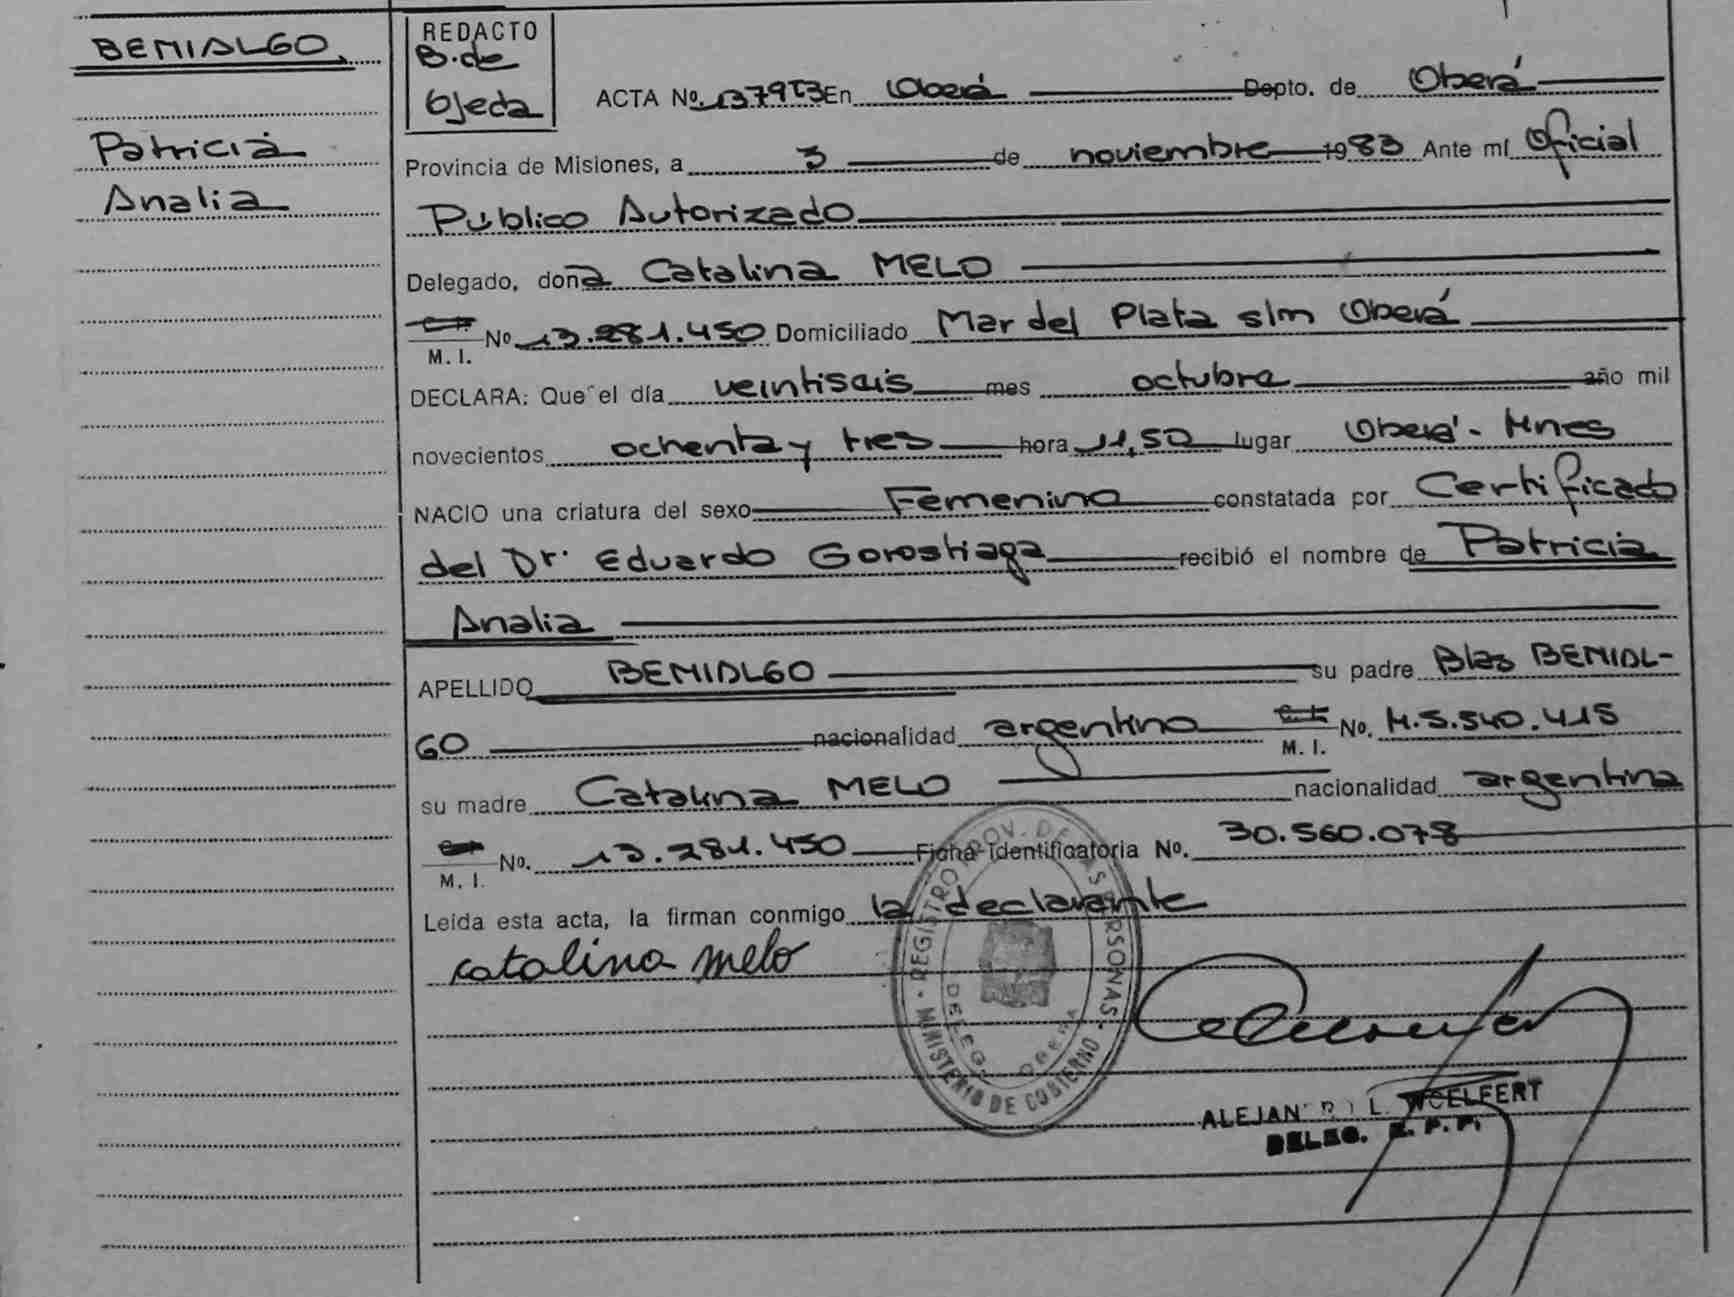 BENIALGO
Patricia
Analia
REDACTO
B. de
Ojeda
ACTA Nº En Oberá Depto. de Oberá
Provincia de Misiones, a 3 de noviembre 1983 Ante mí Oficial
Publico Autorizado
Delegado, doña Catalina MELO
Nº 13.281.450 Domiciliado Mar del Plata s/m Oberá
M. I.
DECLARA: Que el día veintiseis mes octubre año mil
novecientos ochenta y tres hora 11,50 lugar Oberá - Mnes
NACIO una criatura del sexo Femenino constatada por Certificado
del Dr. Eduardo Gorostiaga recibió el nombre de Patricia
Analia
APELLIDO BENIALGO su padre Blas BENIAL-
GO nacionalidad argentino No. M.5.540.415
M. I.
su madre Catalina MELO nacionalidad argentina
No. 13.281.450 Ficha Identificatoria No. 30.560.078
M. I.
Leída esta acta, la firman conmigo la declarante
catalina melo
REGISTRO PROV. DE LAS PERSONAS
MINISTERIO DE GOBIERNO
DELEG. OBERA
L. WOELFERT
DELEG. R. P. P.